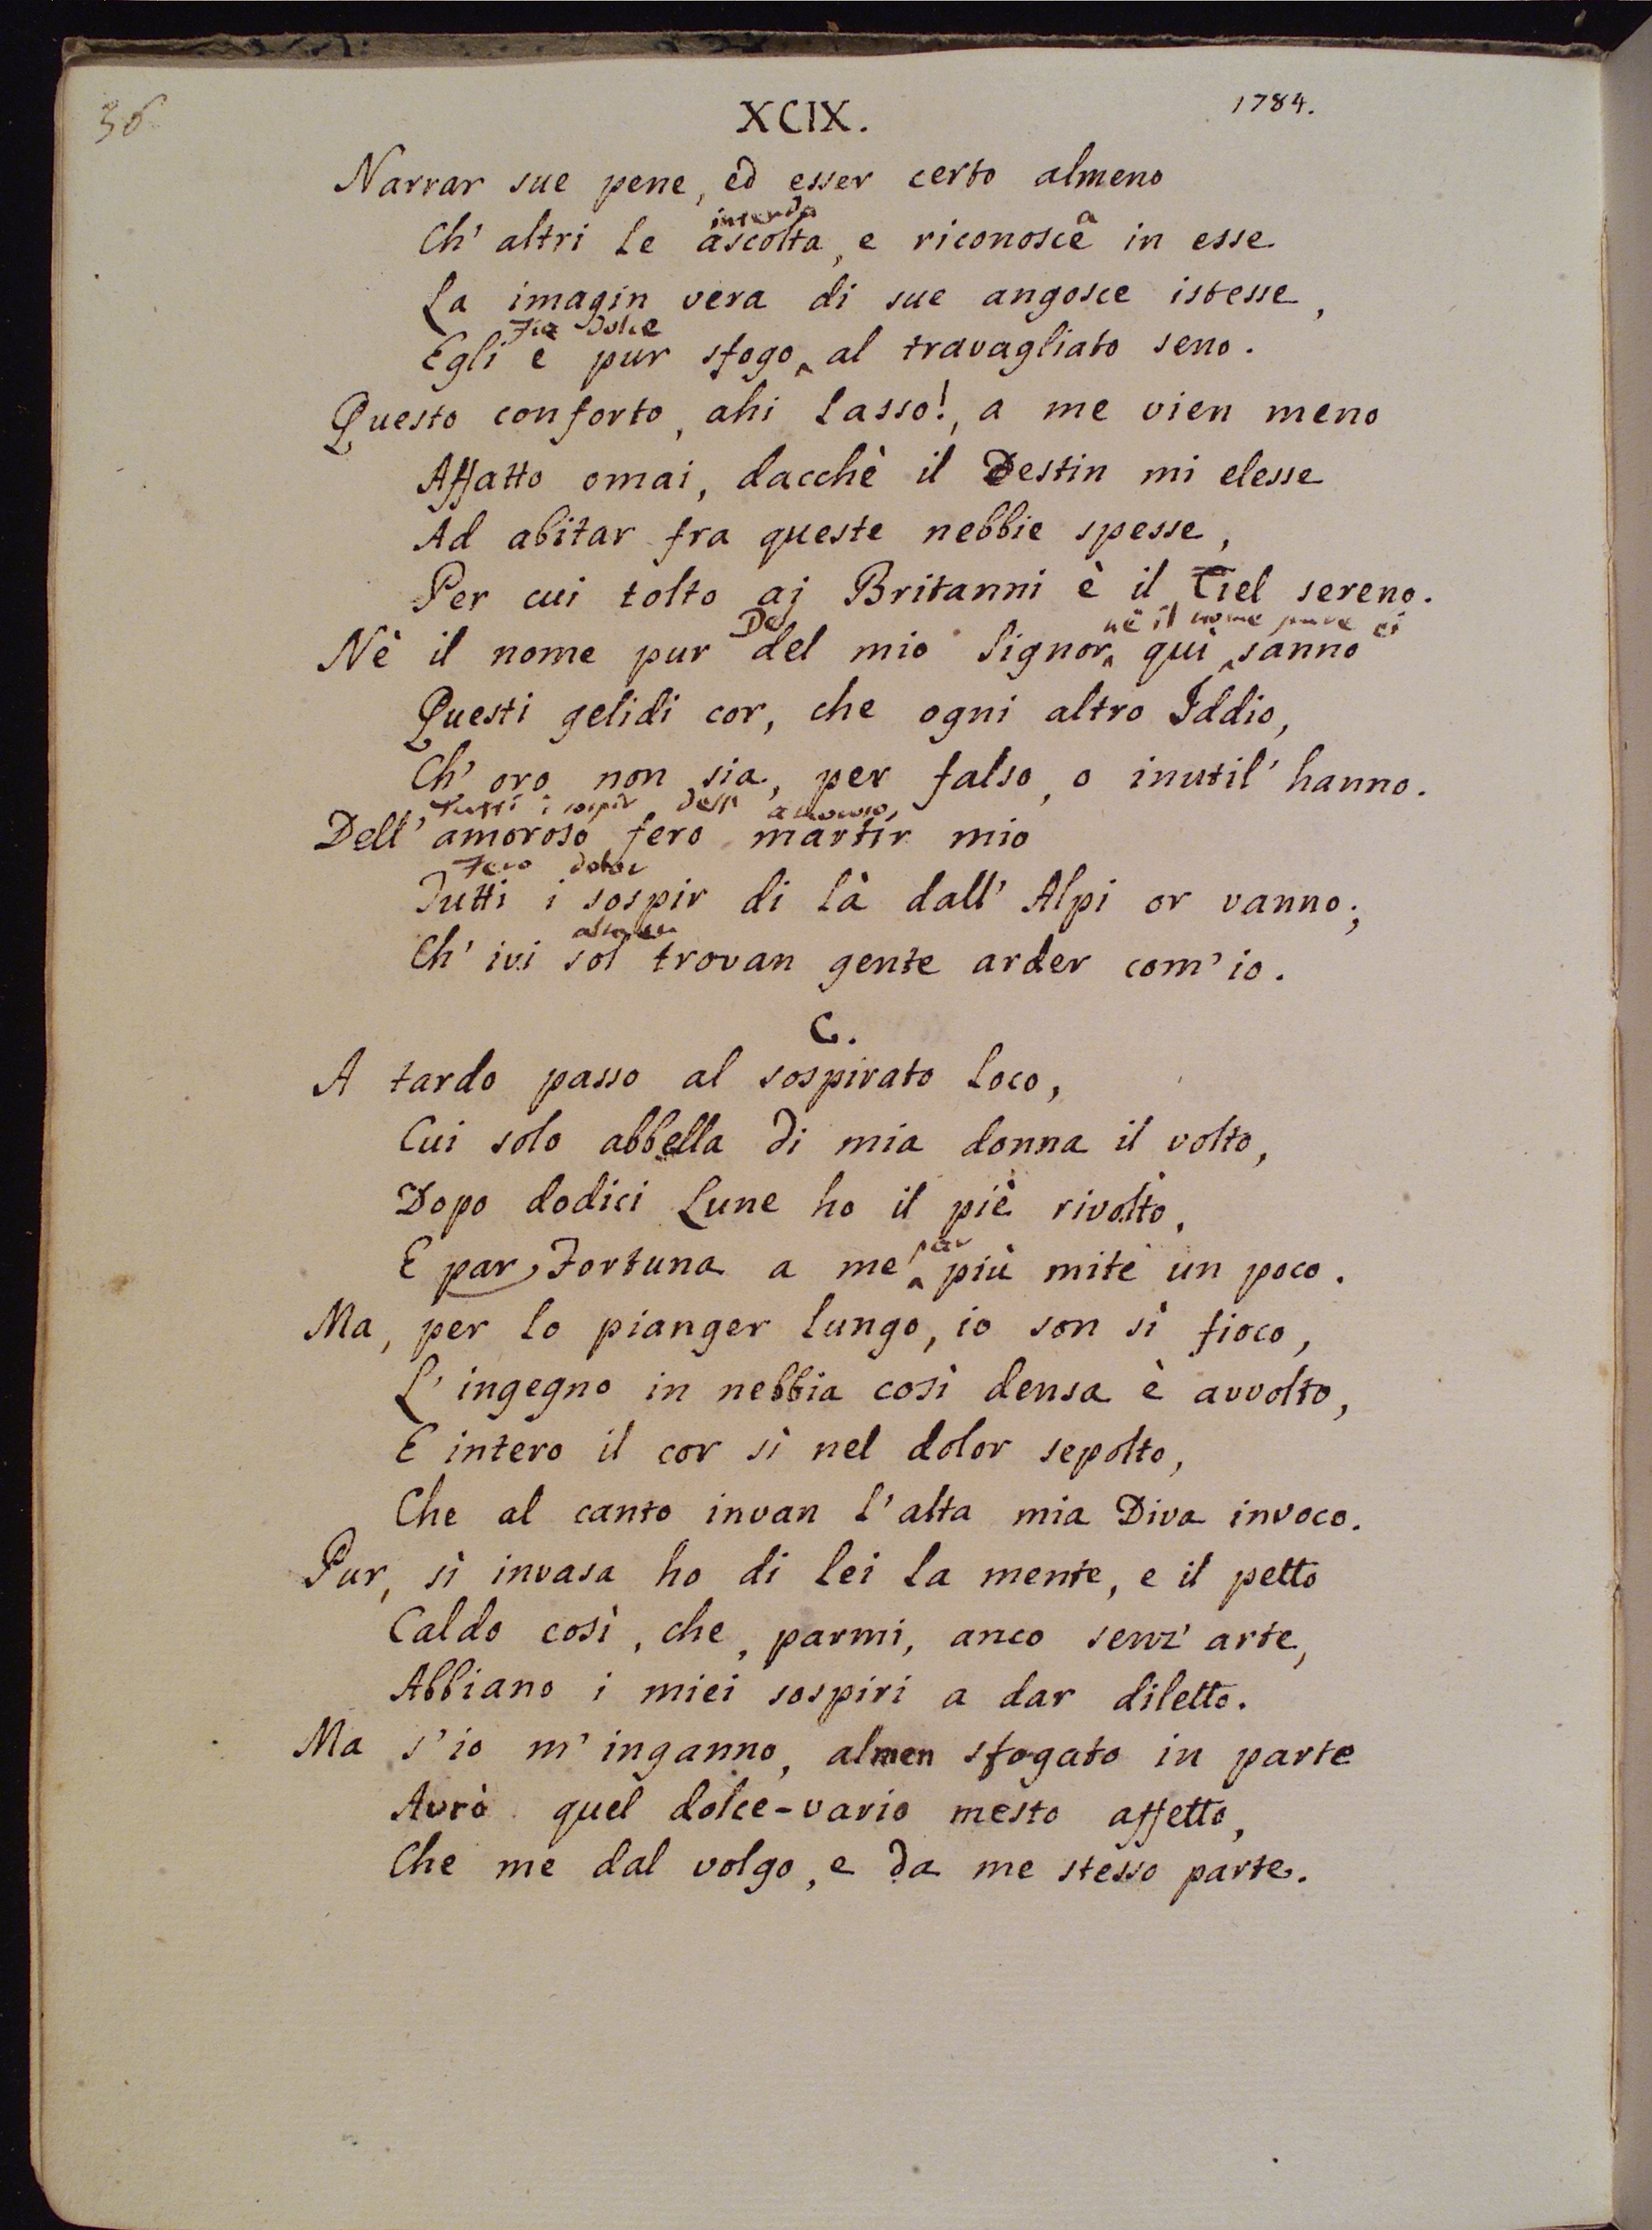 36
XCIX.
1784.
Narrar sue pene, ed esser certo almeno
intenda a
Ch' altri le ascolta, e riconosce in esse
La imagin vera di sue angosce istesse,
Fia dolce
Egli è pur sfogo al travagliato seno.
Questo conforto, ahi lasso!, a me vien meno
Affatto omai, dacchè il Destin mi elesse
Ad abitar fra queste nebbie spesse,
Per cui tolto ai Britanni è il Ciel sereno.
De nè il nome pure ei
Nè il nome pur del mio Signor quì sanno
Questi gelidi cor, che ogni altro Iddio,
Ch' oro non sia, per falso, o inutil' hanno.
Tutti i sospir dell' amoroso,
Dell' amoroso fero martir mio
Fero dolor
Tutti i sospir di là dall' Alpi or vanno;
almen
Ch' ivi sol trovan gente arder com' io.
C.
A tardo passo al sospirato loco,
Cui solo abbella di mia donna il volto,
Dopo dodici Lune ho il piè rivolto,
par
E par Fortuna a me più mite un poco.
Ma, per lo pianger lungo, io son sì fioco,
L' ingegno in nebbia così densa è avvolto,
E intero il cor sì nel dolor sepolto,
Che al canto invan l' alta mia Diva invoco.
Pur, sì invasa ho di lei la mente, e il petto
Caldo così, che, parmi, anco senz' arte,
Abbiano i miei sospiri a dar diletto.
Ma s' io m' inganno, almen sfogato in parte
Avrò quel dolce-vario mesto affetto,
Che me dal volgo, e da me stesso parte.